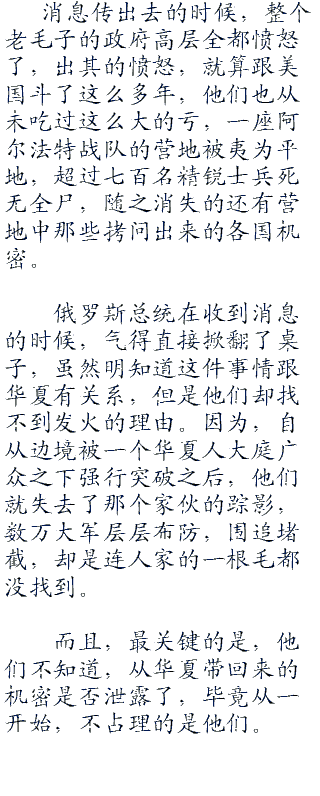 消息传出去的时候，整个
老毛子的政府高层全都愤怒
了，出其的愤怒，就算跟美
国斗了这么多年，他们也从
未吃过这么大的亏，一座阿
尔法特战队的营地被夷为平
地，超过七百名精锐士兵死
无全尸，随之消失的还有营
地中那些拷问出来的各国机
密。
俄罗斯总统在收到消息
的时候，气得直接掀翻了桌
子，虽然明知道这件事情跟
华夏有关系，但是他们却找
不到发火的理由。因为，自
从边境被一个华夏人大庭广
众之下强行突破之后，他们
就失去了那个家伙的踪影，
数万大军层层布防，围追堵
截，却是连人家的一根毛都
没找到。
而且，最关键的是，他
们不知道，从华夏带回来的
机密是否泄露了，毕竟从一
开始，不占理的是他们。